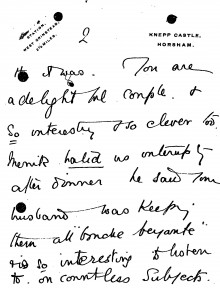 STATION,
WEST GRINSTEAD
1½ MILES.
KNEPP CASTLE,
HORSHAM.
2
it was. You are
a delightful couple. &
So interesting & so clever too
Merrik us
after dinner he said your
husband was keeping
them all "bouche beyante"
so interesting to listen
to. on countless Subjects.